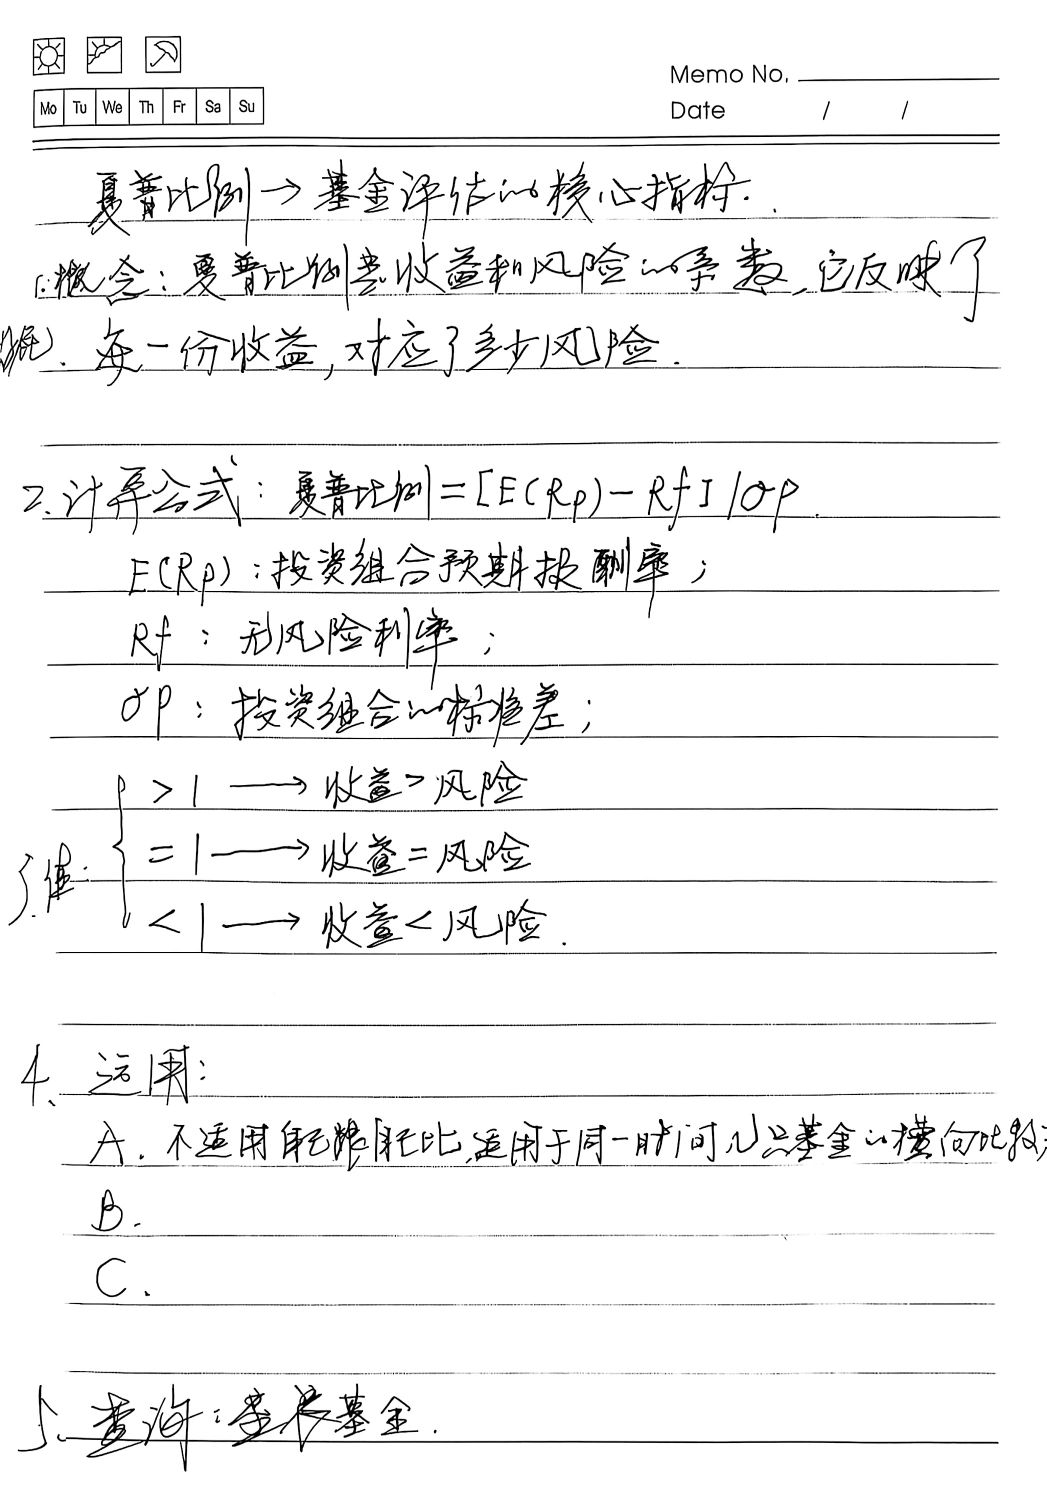 Memo No.
Mo Tu We Th Fr Sa Su
Date / /
夏普比例→基金评估的核心指标.
1.概念:夏普比例是收益和风险的系数,它反映了
每一份收益,对应了多少风险.
2.计算公式:夏普比例=[E(Rp)-Rf]/σp.
E(Rp):投资组合预期报酬率;
Rf:无风险利率;
σp:投资组合的标准差;
>1→收益>风险
3.值: =1→收益=风险
<1→收益<风险.
4.运用:
A.不适用自己跟自己比,适用于同一时间几只基金的横向比较;
B.
C.
5.查询:基金.